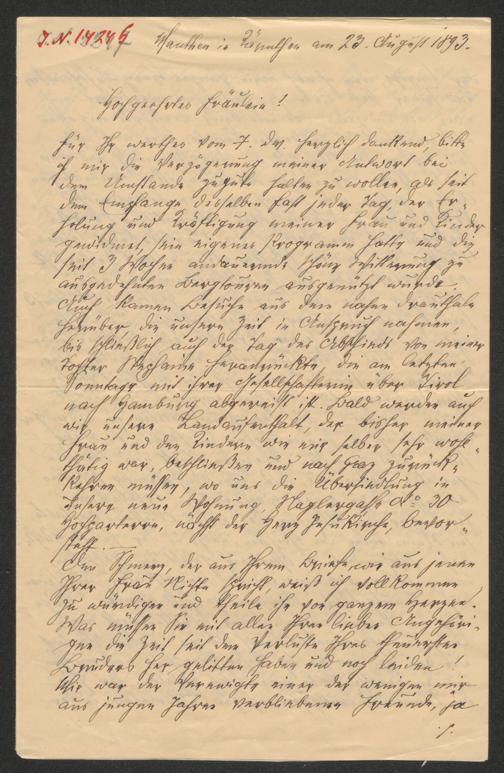 J.N. 14246
Mauthen in Kärnthen am 23. August 1893.
Hochgeehrtes Fräulein!
Für Ihr werthes vom 7. dM. herzlich dankend, bitte
ich mir die Verzögerung meiner Antwort bei
dem Umstande zugute halten zu wollen, als seit
dem Empfange desselben fast jeder Tag, der Er-
holung und Kräftigung meiner Frau und Kinder
gewidmet, sein eigenes Programm hatte und die
seit 3 Wochen andauernde schöne Witterung zu
ausgedehnten Bergtouren ausgenützt wurde.
Auch kamen Besuche aus dem nahen Drauthale
herüber die unsere Zeit in Anspruch nahmen,
bis schließlich auch der Tag des Abschieds von meiner
Tochter Stephanie heranrückte, die am letzten
Sonntage mit ihrer Gesellschafterin über Tirol
nach Hamburg abgereist ist. Bald werden auch
wir unseren Landaufenthalt, der bisher meiner
Frau und den Kindern wie mir selber sehr wohl-
thätig war, beschließen und nach Graz zurück-
kehren müssen, wo uns die Übersiedlung in
unsere neue Wohnung, Naglergasse No 30
Hochparterre, nächst der Herz Jesu Kirche, bevor-
steht.
Den Schmerz, der aus Ihrem Briefe, wie aus jenen
Ihrer Frau Nichte spricht, weiß ich vollkommen
zu würdigen und theile ihn von ganzem Herzen.
Was müssen Sie mit allen Ihren lieben Angehöri-
gen die Zeit seit dem Verluste Ihres theuersten
Bruders her gelitten haben und noch leiden!
Mir war der Verewigte einer der wenigen mir
aus jungen Jahren verbliebenen Freunde, ja
./.